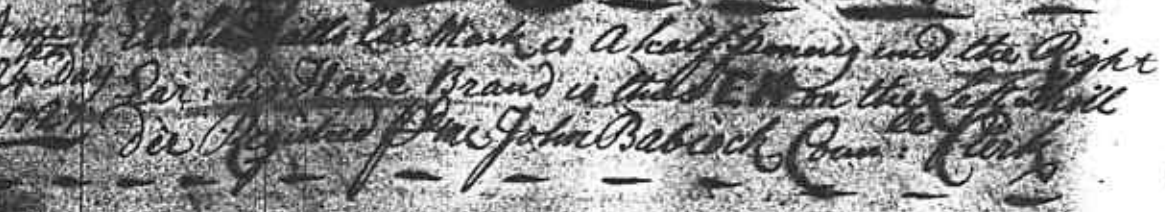 Ear Mark is A half penny und the Right
24 Day Ear: his Horse Brand is thus E W on the Left Shoul
der Registred P me John Babcock Coun: Clerk